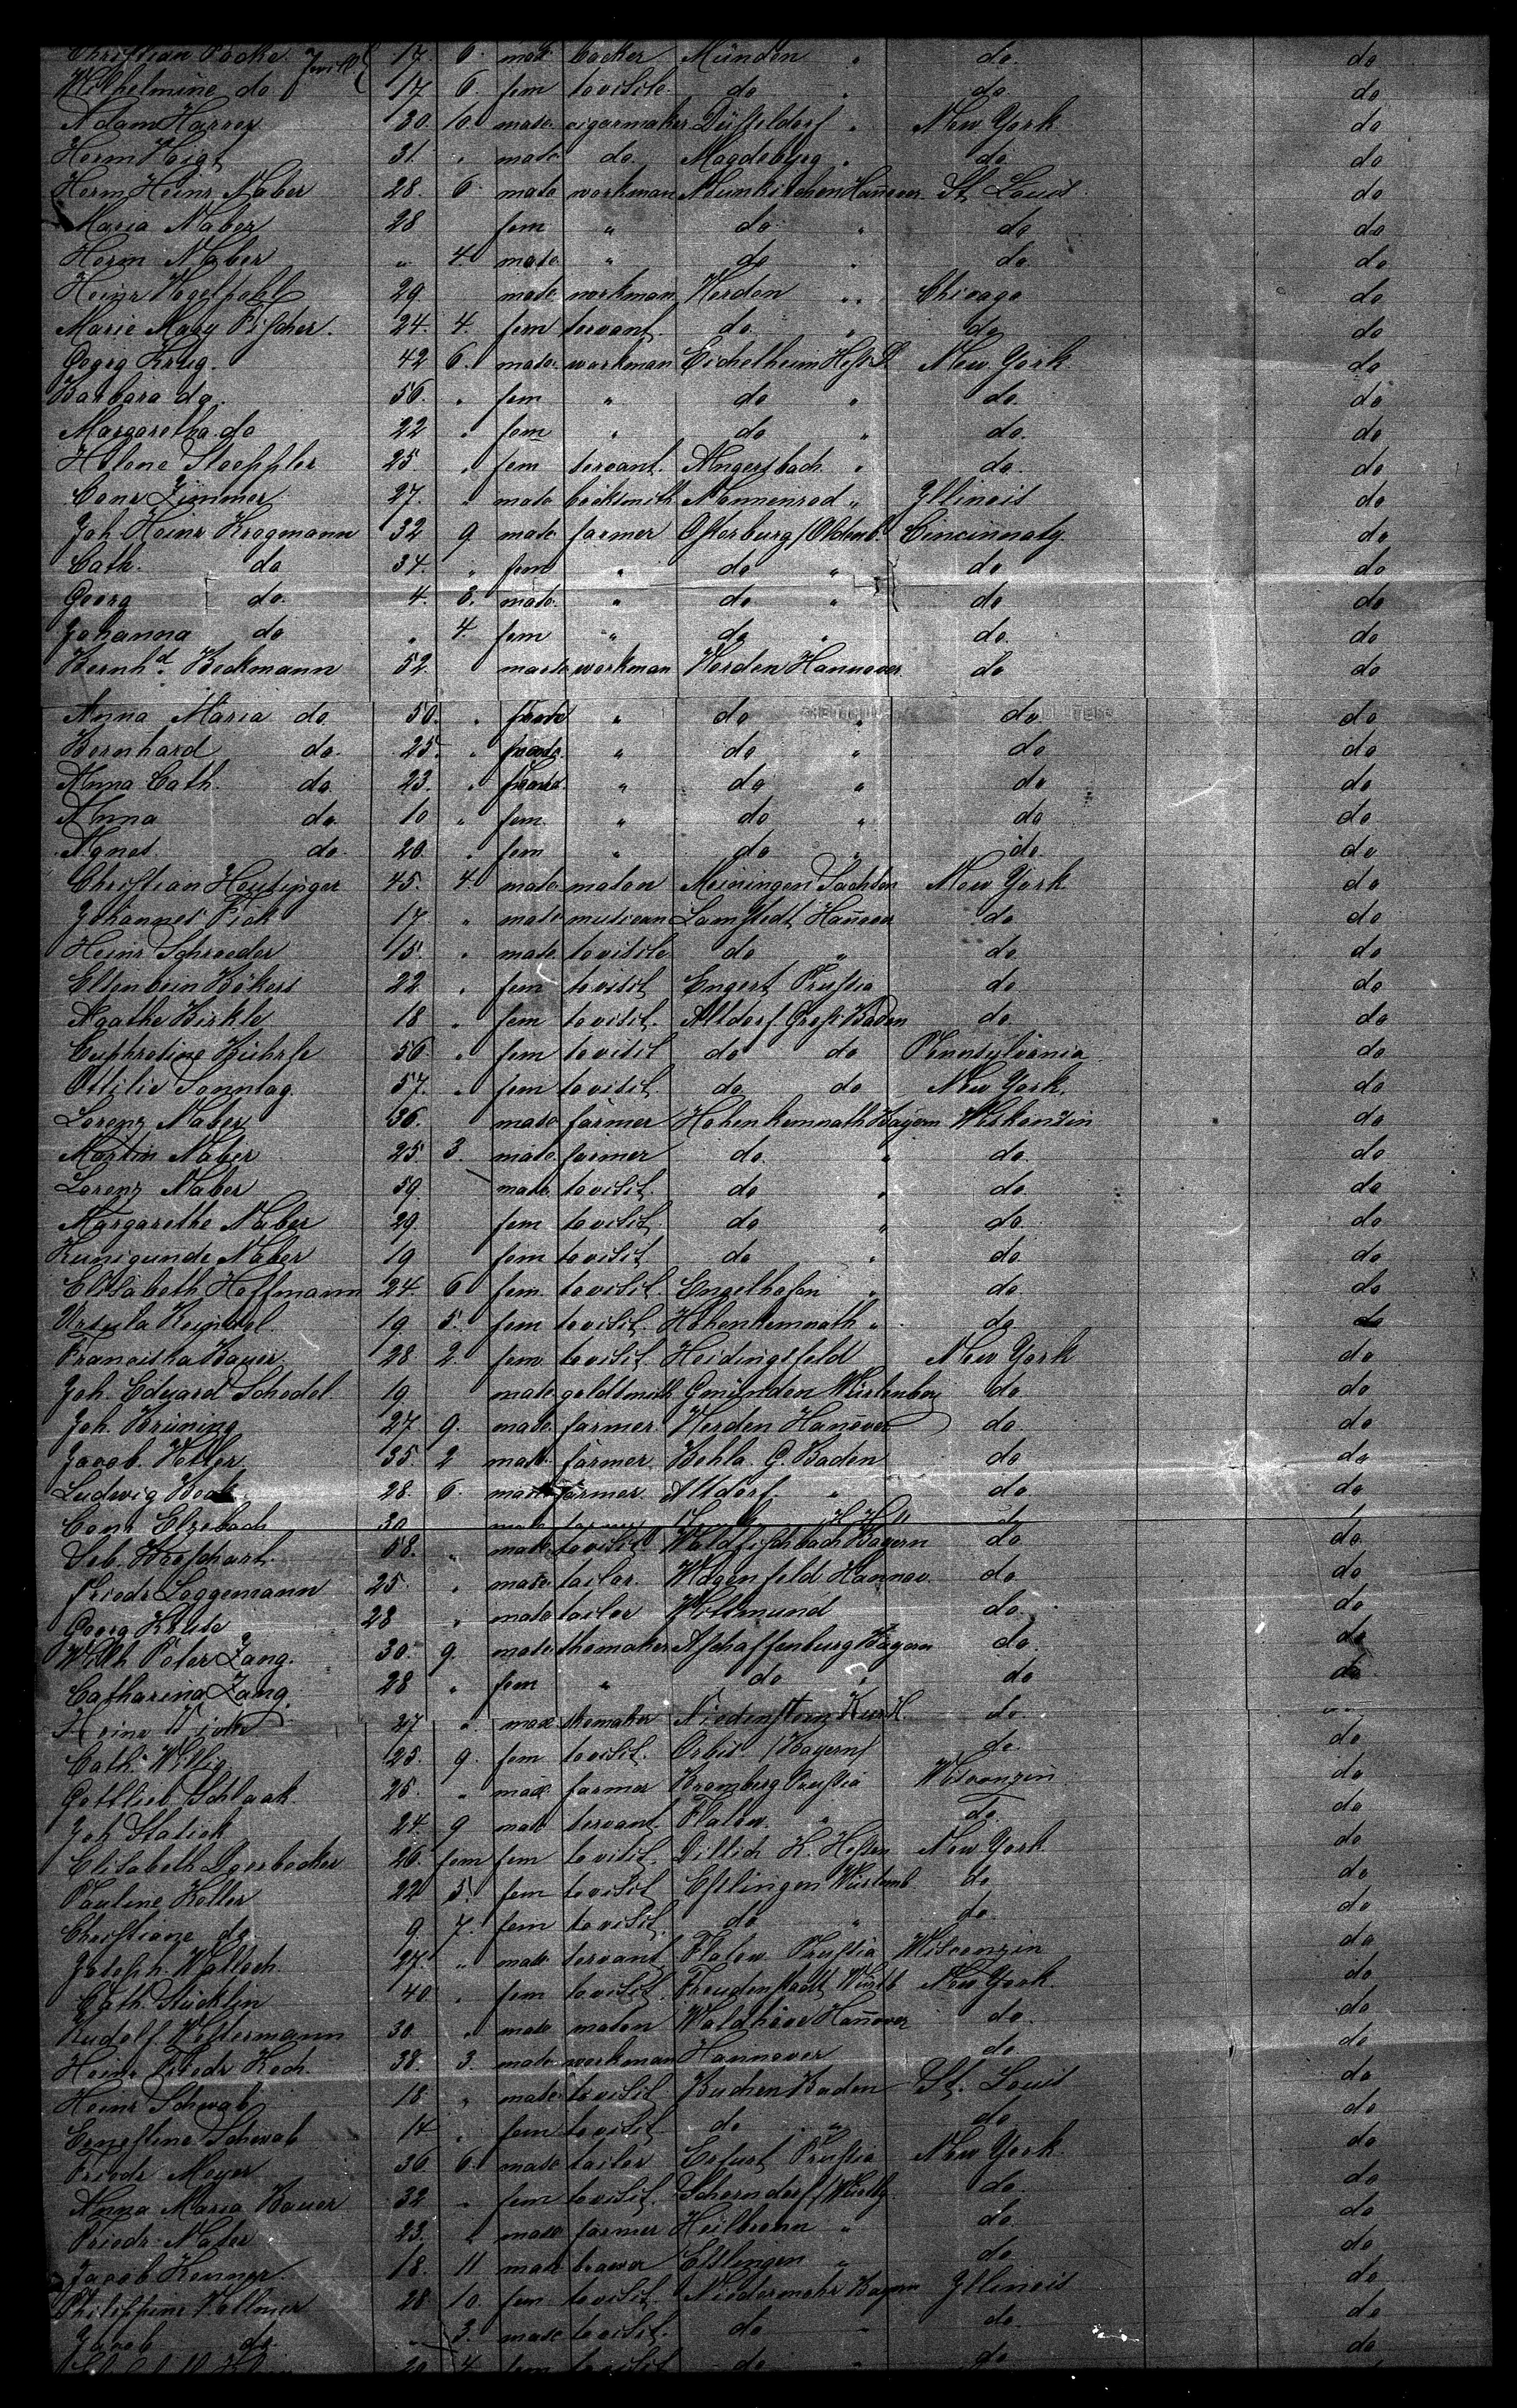 Christian Pocke 17. 6. masc backer Münden " do. do
Wilhelmine do 17 6. fem to visite do " do do
Adam Harvey 30. 10. masc. cigarmaker Düsseldorf " New York do
Herm Voigt 31. " masc do. Magdeburg " do. do
Herm Heinr Naber 28. 6. masc workman Neunkirchen Hannov. St. Louis do
Maria Naber 28 fem " do " do do
Herm Naber " 4. masc " do " do. do
Heinr Vogelpohl 29. masc workman Verden " Chicago do
Marie Mary Fischer. 24. 4. fem servant. do. " do do
Georg Krug. 42 6. masc. workman Eichelheim Hess D. New York do
Barbara do. 56. " fem " do " do. do
Margaretha do 22 " fem " do " do. do
Helene Stoeppler 25 " fem servant. Angersbach " do. do
Conr Zimmer 27. " masc backsmith Nonnenrod " Yllinois do
Joh Heinr Krogmann 32 9 masc farmer Osterburg /Oldenb. Cincinnaty do
Cath. do 34. " fem " do " do do
Georg do. 4. 8. masc. " do " do do
Johanna do " 4. fem " do " do. do
Bernhd. Beckmann 52. masc workman Verden Hannover do do
Anna Maria do 50. " " do " do do
Bernhard do. 25. " " do " do do
Anna Cath. do. 23. " " do " do do
Anna do. 10 " fem. " do " do do
Agnes do 20. " fem " do " do. do
Christian Heusinger 45. 4. masc mason Meiningen Sachsen New York do
Johannes Fick 17 " masc musican Lamstedt Hannov do do
Heinr Schroeder 15. " masc to visite do " do. do
Elsenbein Bökers 22. " fem to visit Engers Prussia do do
Agathe Birkle 18 " fem to visit. Altdorf Gross Baden do. do
Euphrosine Bührle 56. " fem to visit do do Pennsylvania do
Ottilie Sonntag 57. " fem to visit do do New York. do
Lorenz Naber 36. masc farmer Hohenkemnath Bayern Wiskonzin do
Martin Naber 25 3. masc farmer do. " do. do
Lorenz Naber 59 masc to visit. do " do. do
Margarethe Naber 29. fem to visit. do " do. do
Kunigunde Naber 19 fem to visit do " do. do
Elisabeth Hoffmann 24. 6 fem. to visit. Engelhofen " do. do
Ursula Reindel 19 5. fem to visit. Hohenkemnath " do do
Franciska Bauer 28 2 fem to visit. Heidingsfeld New York do
Joh. Eduard Schedel 19 masc goldsmith Gmünden Würtenberg do. do
Joh. Brüning 27 9. masc. farmer. Verden Hannover do do
Jacob. Vetter. 35. 2 masc. farmer. Behla. G. Baden do do
Ludwig 28. 6. masc farmer. Altdorf " do do
Conr Elzebach 30 masc do
Seb. 58. " masc to visit Waldfischbach Bayern do do.
Friedr Loggemann 25. " masc. tailor. Wagenfeld Hannov. do do
Georg Kruse 28 " masc tailor Wittmund do. do
Wilh Peter Zang. 30. 9. masc shomaker Aschaffenburg Bayern do. do
Catharina Zang. 28 " fem " do " do do
Heinr 27 " masc shomaker Niedenstein Kur H. do.
Cath. Willig 25. 9. fem to visit. Orbis (Bayern) do. do
Gottlieb Schlaak. 25. " masc farmer Bromberg Prussia Wisconzin do
Joh Statick 24. 9 masc servant. Flatow " do. do
Elisabeth Doerbecker 26. fem fem to visit. Dillich K. Hessen New York do
Pauline Keller 22 5. fem to visit Esslingen Würtemb do do
Christiane do. 9 7. fem to visit. do " do. do
Joseph. Wallach. 27. " masc servant Flatow Prussia Wisconzin do
Cath. Stücklin 40 " fem to visit. Freudenstadt Würtb New York do
Rudolf Westermann 30. " masc mason Hannover do. do
Heinr. Friedr Koch. 38. 3. masc workman Hannover do do
Heinr Schwab 18 " masc to visit Buchen Baden St. Louis do
Ernestine Schwab 14 " fem to visit do " do do
Friedr Meyer 36 6. masc tailor Erfurt Prussia New York do
Anna Maria Bauer 32 " fem to visit. Schorndorf /Würtb do. do
Friedr. 23. " masc farmer Heilbronn " do. do
Jacob Kenner. 18. 11 masc brewer Esslingen " do do
Philippine Vollmer 28 10. fem to visit. Niedermohr Bayern Yllinois do
Jacob do. " 3. masc to visit. do " do. do
20 4 fem to visit do do do